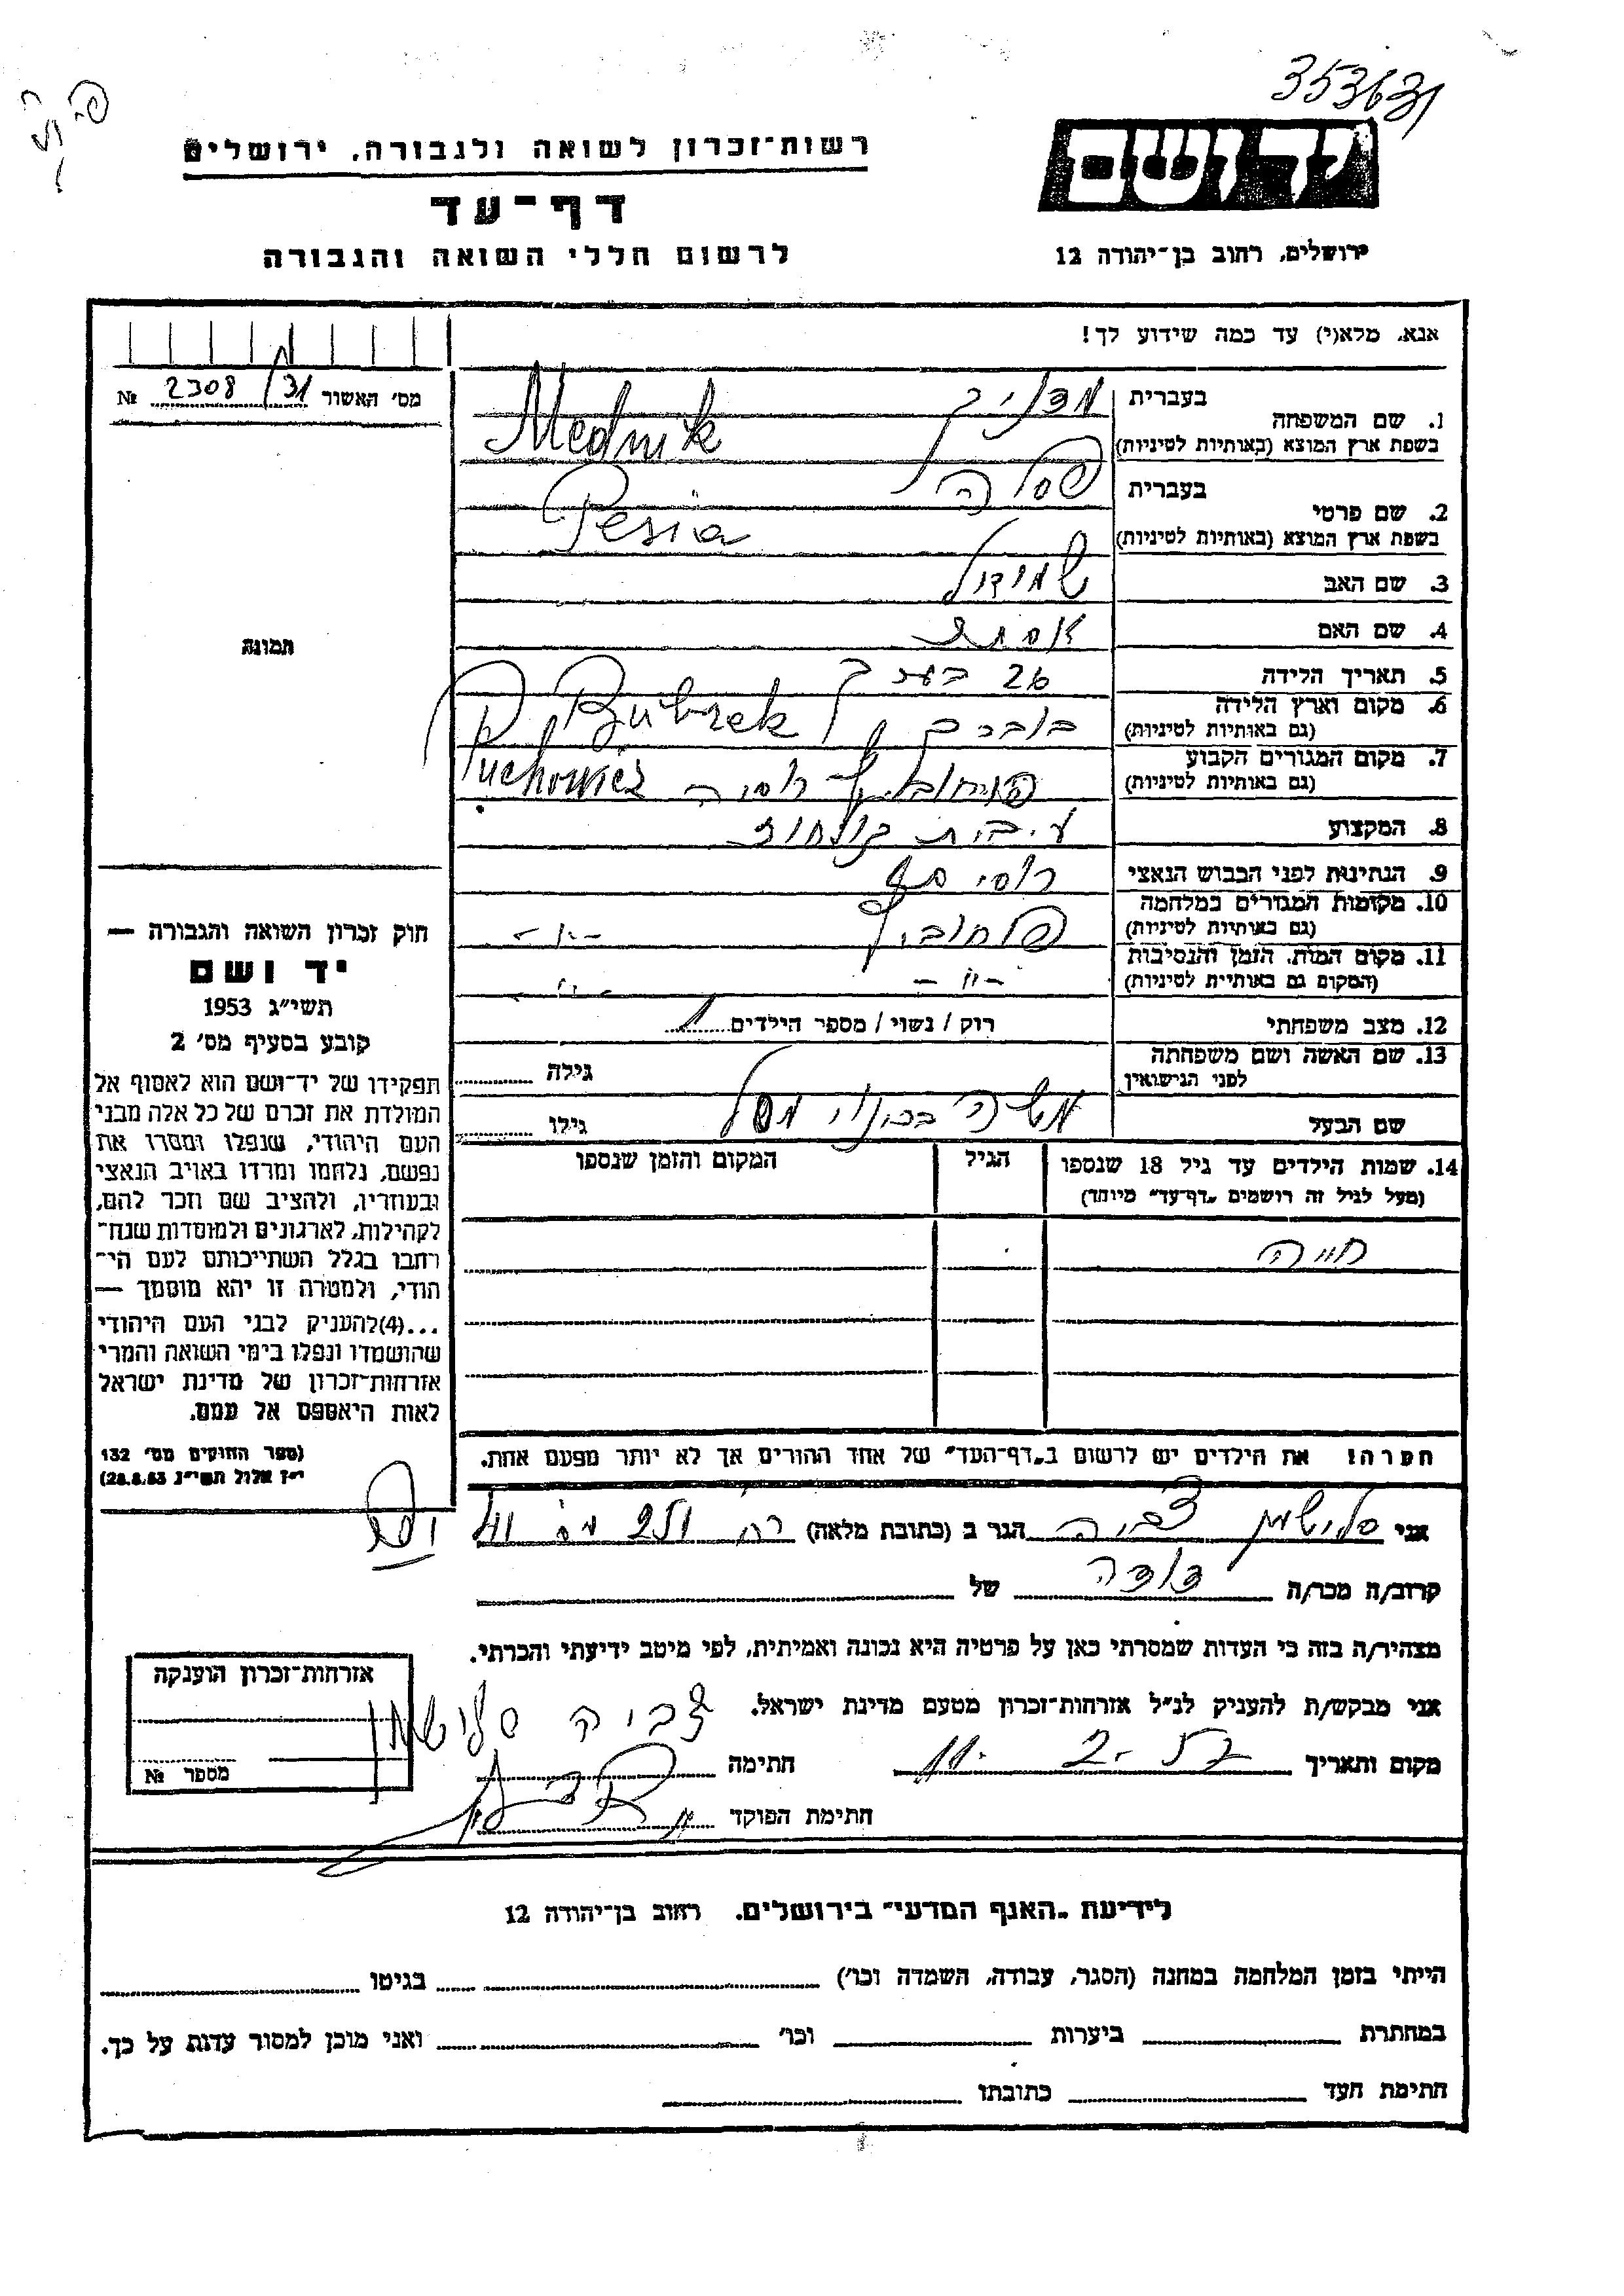 353631
רשות־זכרון לשואה ולגבורה, ירושלים
יד ושם
דף־עד
לרשום חללי השואה והגבורה
ירושלים, רחוב בן־יהודה 12
אנא, מלא(י) עד כמה שידוע לך!
מס׳ האשור 2308/31 №
1. שם המשפחה
בעברית מדניק
בשפת ארץ המוצא (באותיות לטיניות) Mednik
2. שם פרטי
בעברית פסיה
בשפת ארץ המוצא (באותיות לטיניות) Pesia
3. שם האב שמואל
4. שם האם אסתר
5. תאריך הלידה 26 בערך
6. מקום וארץ הלידה
(גם באותיות לטיניות) Bubrek
7. מקום המגורים הקבוע
(גם באותיות לטיניות) רוסיה Puchowicz
8. המקצוע
9. הנתינות לפני הכבוש הנאצי
10. מקומות המגורים במלחמה
(גם באותיות לטיניות) -״-
11. מקום המות, הזמן והנסיבות
(המקום גם באותיות לטיניות) -״- -״-
12. מצב משפחתי רוק / נשוי / מספר הילדים 1
13. שם האשה ושם משפחתה
לפני הנישואין
גילה
שם הבעל משה
גילו
14. שמות הילדים עד גיל 18 שנספו
(מעל לגיל זה רושמים „דף־עד״ מיוחד)
הגיל
המקום והזמן שנספו
חיה
הערה! את הילדים יש לרשום ב„דף־העד״ של אחד ההורים אך לא יותר מפעם אחת.
תמונה
חוק זכרון השואה והגבורה —
יד ושם
תשי״ג 1953
קובע בסעיף מס׳ 2
תפקידו של יד־ושם הוא לאסוף אל
המולדת את זכרם של כל אלה מבני
העם היהודי, שנפלו ומסרו את
נפשם, נלחמו ומרדו באויב הנאצי
ובעוזריו, ולהציב שם וזכר להם,
לקהילות, לארגונים ולמוסדות שנח־
רבו בגלל השתייכותם לעם הי־
הודי, ולמטרה זו יהא מוסמך —
...(4)להעניק לבני העם היהודי
שהושמדו ונפלו בימי השואה והמרי
אזרחות־זכרון של מדינת ישראל
לאות היאספם אל עמם.
(ספר החוקים מס׳ 132
י״ז אלול תשי״ג 28.8.53)
אני צביה הגר ב (כתובת מלאה)
קרוב/ה מכר/ה דודה של
מצהיר/ה בזה כי העדות שמסרתי כאן על פרטיה היא נכונה ואמיתית, לפי מיטב ידיעתי והכרתי.
אני מבקש/ת להעניק לנ״ל אזרחות־זכרון מטעם מדינת ישראל.
מקום ותאריך
חתימה צביה
חתימת הפוקד
אזרחות־זכרון הוענקה
מספר №
לידיעת „האגף המדעי״ בירושלים, רחוב בן־יהודה 12
הייתי בזמן המלחמה במחנה (הסגר, עבודה, השמדה וכו׳) בגיטו
במחתרת ביערות וכו׳ ואני מוכן למסור עדות על כך.
חתימת העד כתובתו